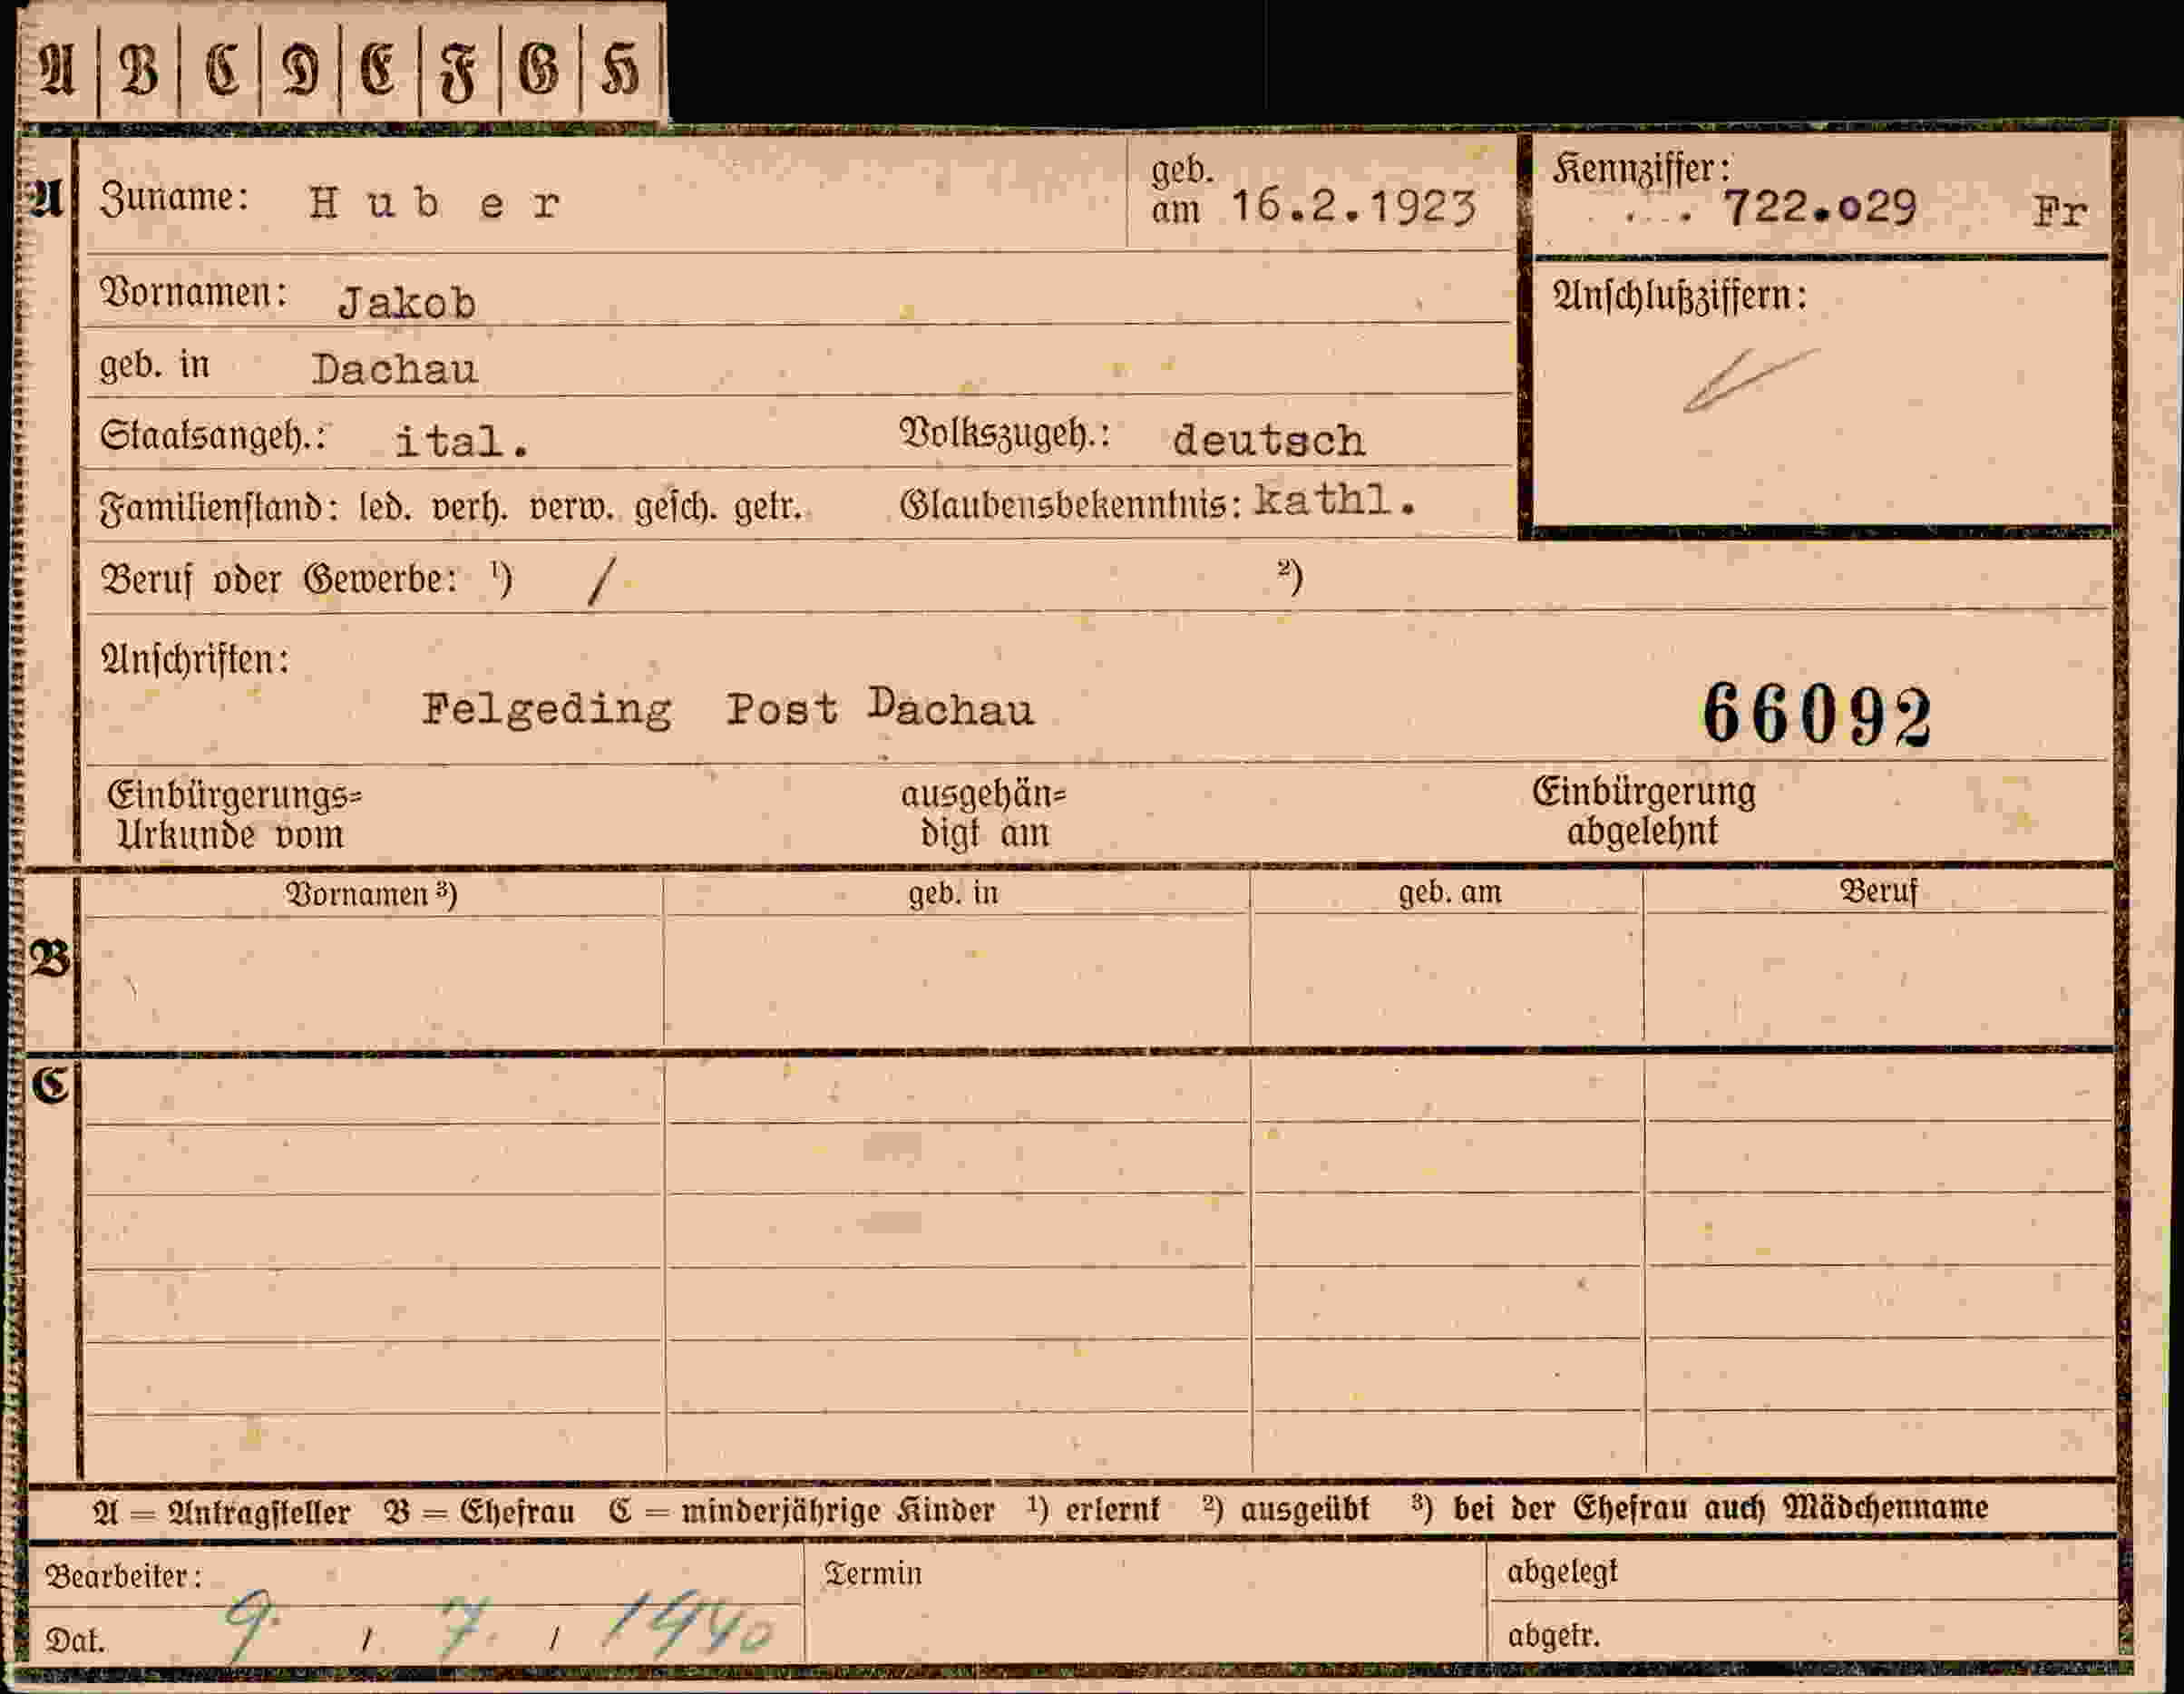 A B C D E F G H
A Zuname: Huber geb. am 16.2.1923 Kennziffer: 722.029 Fr
Vornamen: Jakob Anschlußziffern:
geb. in Dachau
Staatsangeh.: ital. Volkszugeh.: deutsch
Familienstand: led. verh. verw. gesch. getr. Glaubensbekenntnis: kathl.
Beruf oder Gewerbe: ¹) / ²)
Anschriften:
Felgeding Post Dachau 66092
Einbürgerungs= ausgehän= Einbürgerung
Urkunde vom digt am abgelehnt
Vornamen ³) geb. in geb. am Beruf
B
C
A = Antragsteller B = Ehefrau C = minderjährige Kinder ¹) erlernt ²) ausgeübt ³) bei der Ehefrau auch Mädchenname
Bearbeiter: Termin abgelegt
Dat. 9. / 7. / 1940 abgetr.